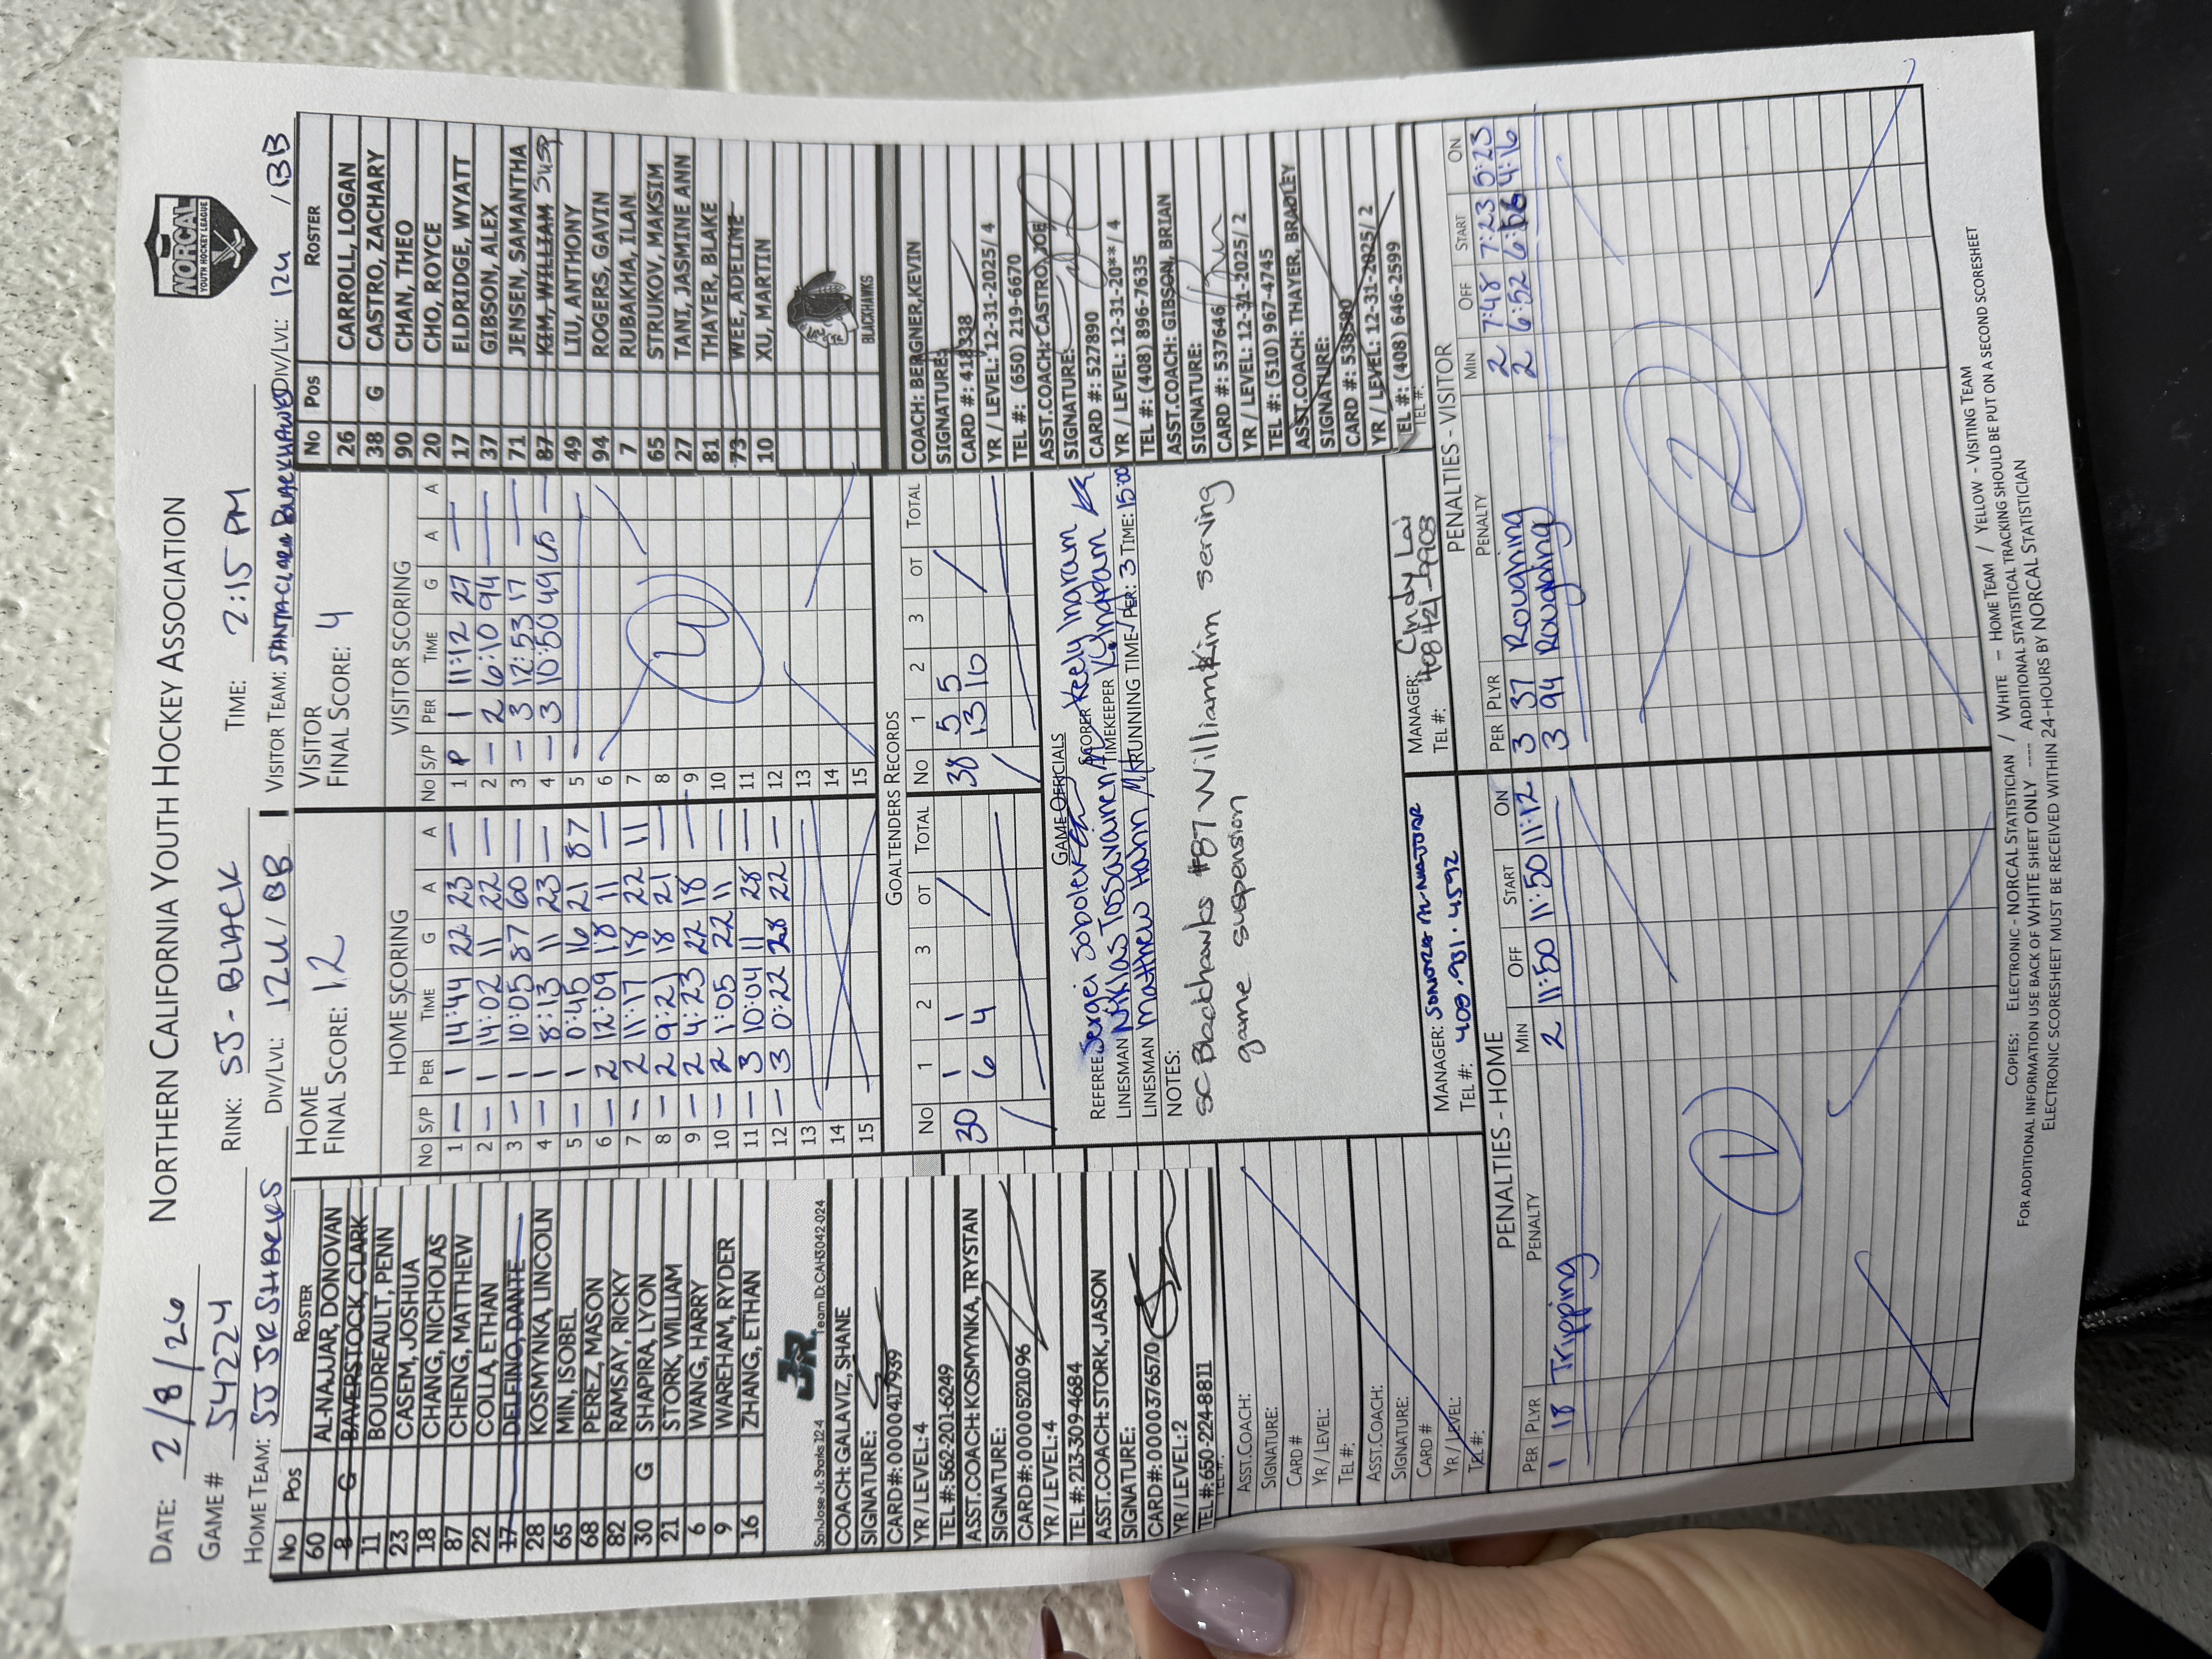 NORTHERN CALIFORNIA YOUTH HOCKEY ASSOCIATION
NORCAL
YOUTH HOCKEY LEAGUE
DATE: 2/8/26
GAME # 54224
RINK: SJ - BLACK
TIME: 2:15 PM
HOME TEAM: SJ JR SHARKS
DIV/LVL: 12U / BB
VISITOR TEAM: SANTA CLARA BLACKHAWKS
DIV/LVL: 12U / BB
No Pos ROSTER
60 AL-NAJJAR, DONOVAN
8 G BAVERSTOCK, CLARK
11 BOUDREAULT, PENN
23 CASEM, JOSHUA
18 CHANG, NICHOLAS
87 CHENG, MATTHEW
22 COLLA, ETHAN
17 DELFINO, DANTE
28 KOSMYNKA, LINCOLN
65 MIN, ISOBEL
68 PEREZ, MASON
82 RAMSAY, RICKY
30 G SHAPIRA, LYON
21 STORK, WILLIAM
6 WANG, HARRY
9 WAREHAM, RYDER
16 ZHANG, ETHAN
San Jose Jr. Sharks 12-4
JR
Team ID: CAH3042-024
COACH: GALAVIZ, SHANE
SIGNATURE:
CARD#: 0000417939
YR/LEVEL: 4
TEL#: 562-201-6249
ASST.COACH: KOSMYNKA, TRYSTAN
SIGNATURE:
CARD#: 0000521096
YR/LEVEL: 4
TEL#: 213-309-4684
ASST.COACH: STORK, JASON
SIGNATURE:
CARD#: 0000376570
YR/LEVEL: 2
TEL#: 650-224-8811
TEL #:
ASST.COACH:
SIGNATURE:
CARD #
YR / LEVEL:
TEL #:
ASST.COACH:
SIGNATURE:
CARD #
YR / LEVEL:
TEL #:
HOME
FINAL SCORE: 12
HOME SCORING
No S/P PER TIME G A A
1 — 1 14:44 22 23 —
2 — 1 14:02 11 22 —
3 — 1 10:05 87 60 —
4 — 1 8:13 11 23 —
5 — 1 0:45 16 21 87
6 — 2 12:09 18 11 —
7 — 2 11:17 18 22 11
8 — 2 9:21 18 21 —
9 — 2 4:23 22 18 —
10 — 2 1:05 22 11 —
11 — 3 10:04 11 28 —
12 — 3 0:22 28 22 —
13
14
15
VISITOR
FINAL SCORE: 4
VISITOR SCORING
No S/P PER TIME G A A
1 P 1 11:12 27 —
2 — 2 6:10 94 —
3 — 3 12:53 17 —
4 — 3 10:50 49 65 —
5
6
7
8
9
10
11
12
13
14
15
4
GOALTENDERS RECORDS
No 1 2 3 OT TOTAL
30 1 1
6 4
No 1 2 3 OT TOTAL
38 5 5
13 10
GAME OFFICIALS
REFEREE Sergei Sobolev
SCORER Keely Ingram
LINESMAN Niklas Tossavainen
TIMEKEEPER K. Ingram
LINESMAN Matthew Hahn
RUNNING TIME/PER: 3 TIME: 15:00
NOTES:
SC Blackhawks #87 William Kim serving
game suspension
MANAGER:
TEL #: 408.931.4592
MANAGER: Cindy Lai
TEL #:
No Pos ROSTER
26 CARROLL, LOGAN
38 G CASTRO, ZACHARY
90 CHAN, THEO
20 CHO, ROYCE
17 ELDRIDGE, WYATT
37 GIBSON, ALEX
71 JENSEN, SAMANTHA
87 KIM, WILLIAM Susp
49 LIU, ANTHONY
94 ROGERS, GAVIN
7 RUBAKHA, ILAN
65 STRUKOV, MAKSIM
27 TANI, JASMINE ANN
81 THAYER, BLAKE
73 WEE, ADELINE
10 XU, MARTIN
BLACKHAWKS
COACH: BERGNER, KEVIN
SIGNATURE:
CARD #: 418338
YR / LEVEL: 12-31-2025/ 4
TEL #: (650) 219-6670
ASST.COACH: CASTRO, JOE
SIGNATURE:
CARD #: 527890
YR / LEVEL: 12-31-20**/ 4
TEL #: (408) 896-7635
ASST.COACH: GIBSON, BRIAN
SIGNATURE:
CARD #: 537646
YR / LEVEL: 12-31-2025/ 2
TEL #: (510) 967-4745
ASST.COACH: THAYER, BRADLEY
SIGNATURE:
CARD #: 538590
YR / LEVEL: 12-31-2025/ 2
TEL #: (408) 646-2599
TEL #:
PENALTIES - HOME
PER PLYR PENALTY MIN OFF START ON
1 18 Tripping 2 11:50 11:50 11:12
1
PENALTIES - VISITOR
PER PLYR PENALTY MIN OFF START ON
3 37 Roughing 2 7:48 7:23 5:23
3 94 Roughing 2 6:52 6:56 4:16
2
Copies: ELECTRONIC - NORCAL STATISTICIAN / WHITE – HOME TEAM / YELLOW - VISITING TEAM
FOR ADDITIONAL INFORMATION USE BACK OF WHITE SHEET ONLY ---- ADDITIONAL STATISTICAL TRACKING SHOULD BE PUT ON A SECOND SCORESHEET
ELECTRONIC SCORESHEET MUST BE RECEIVED WITHIN 24-HOURS BY NORCAL STATISTICIAN